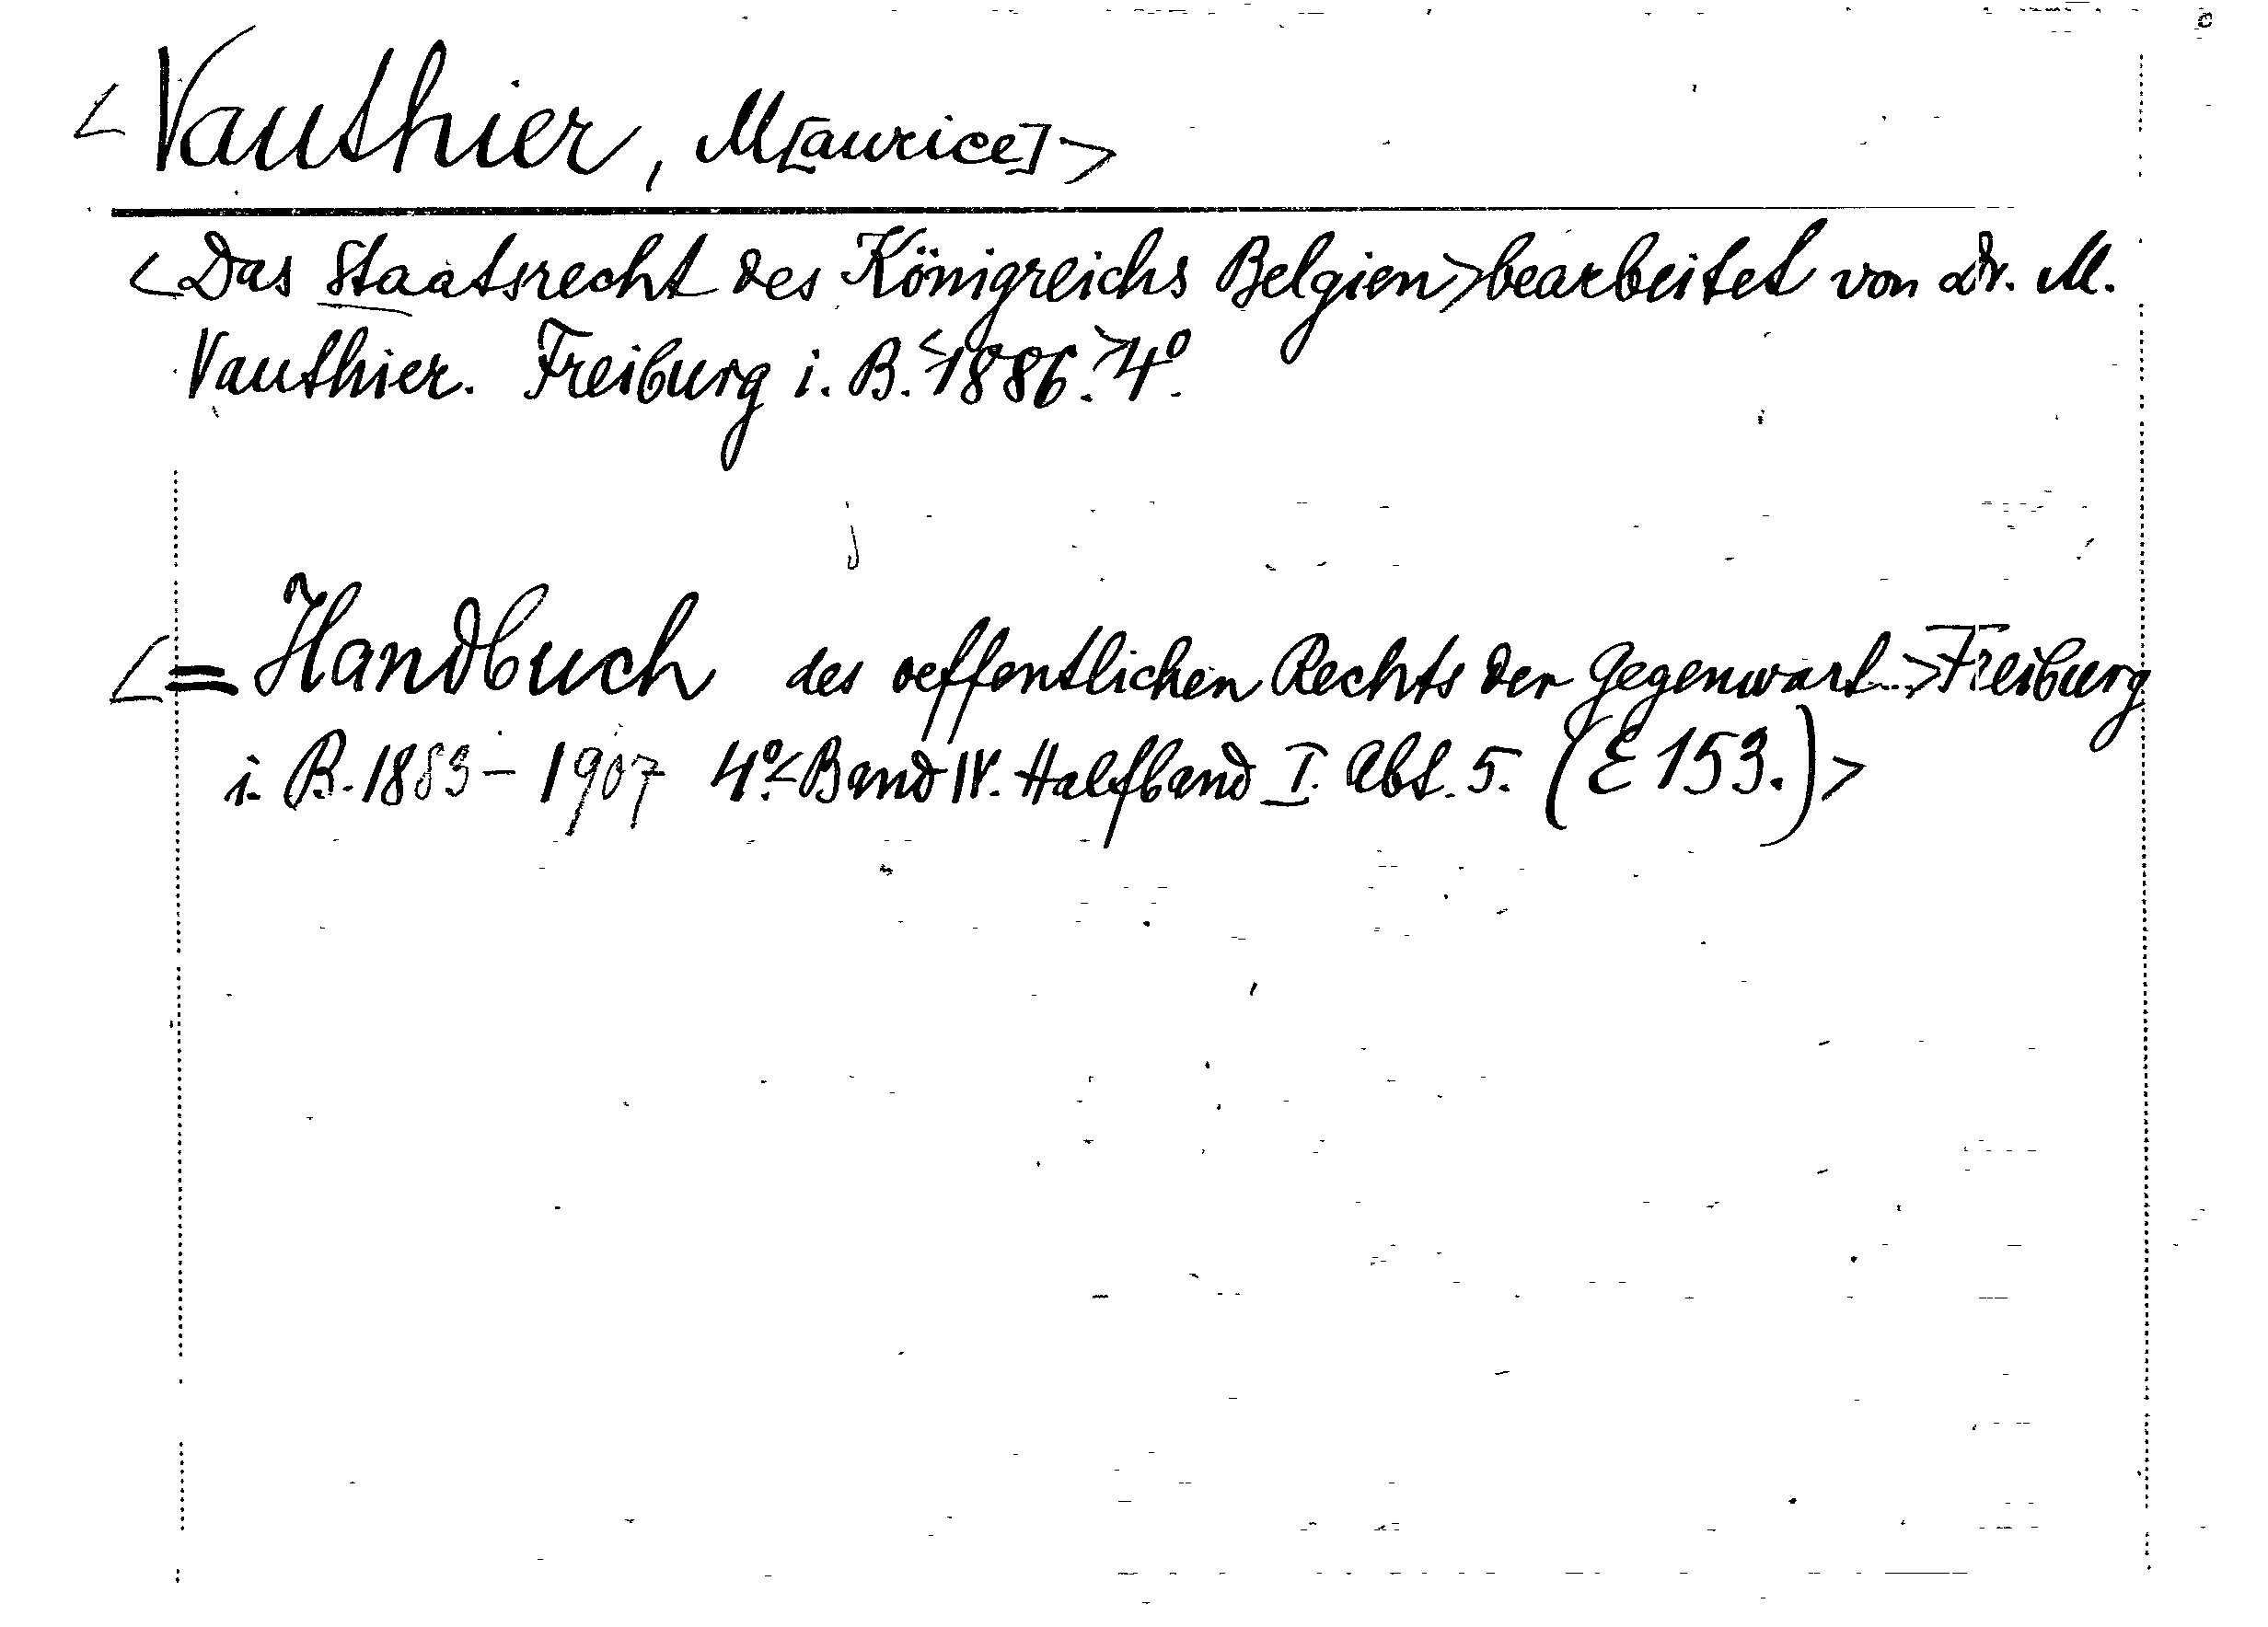 <Vauthier, M[aurice]>
<Das Staatsrecht des Königreichs Belgien> bearbeitet von Dr. M.
Vauthier. Freiburg i. B. <1886.> 4º.
<= Handbuch des oeffentlichen Rechts der Gegenwart...> Freiburg
i. B. 1883-1907 4º. <Band IV. Halfband I. Abt. 5. (E 153.)>